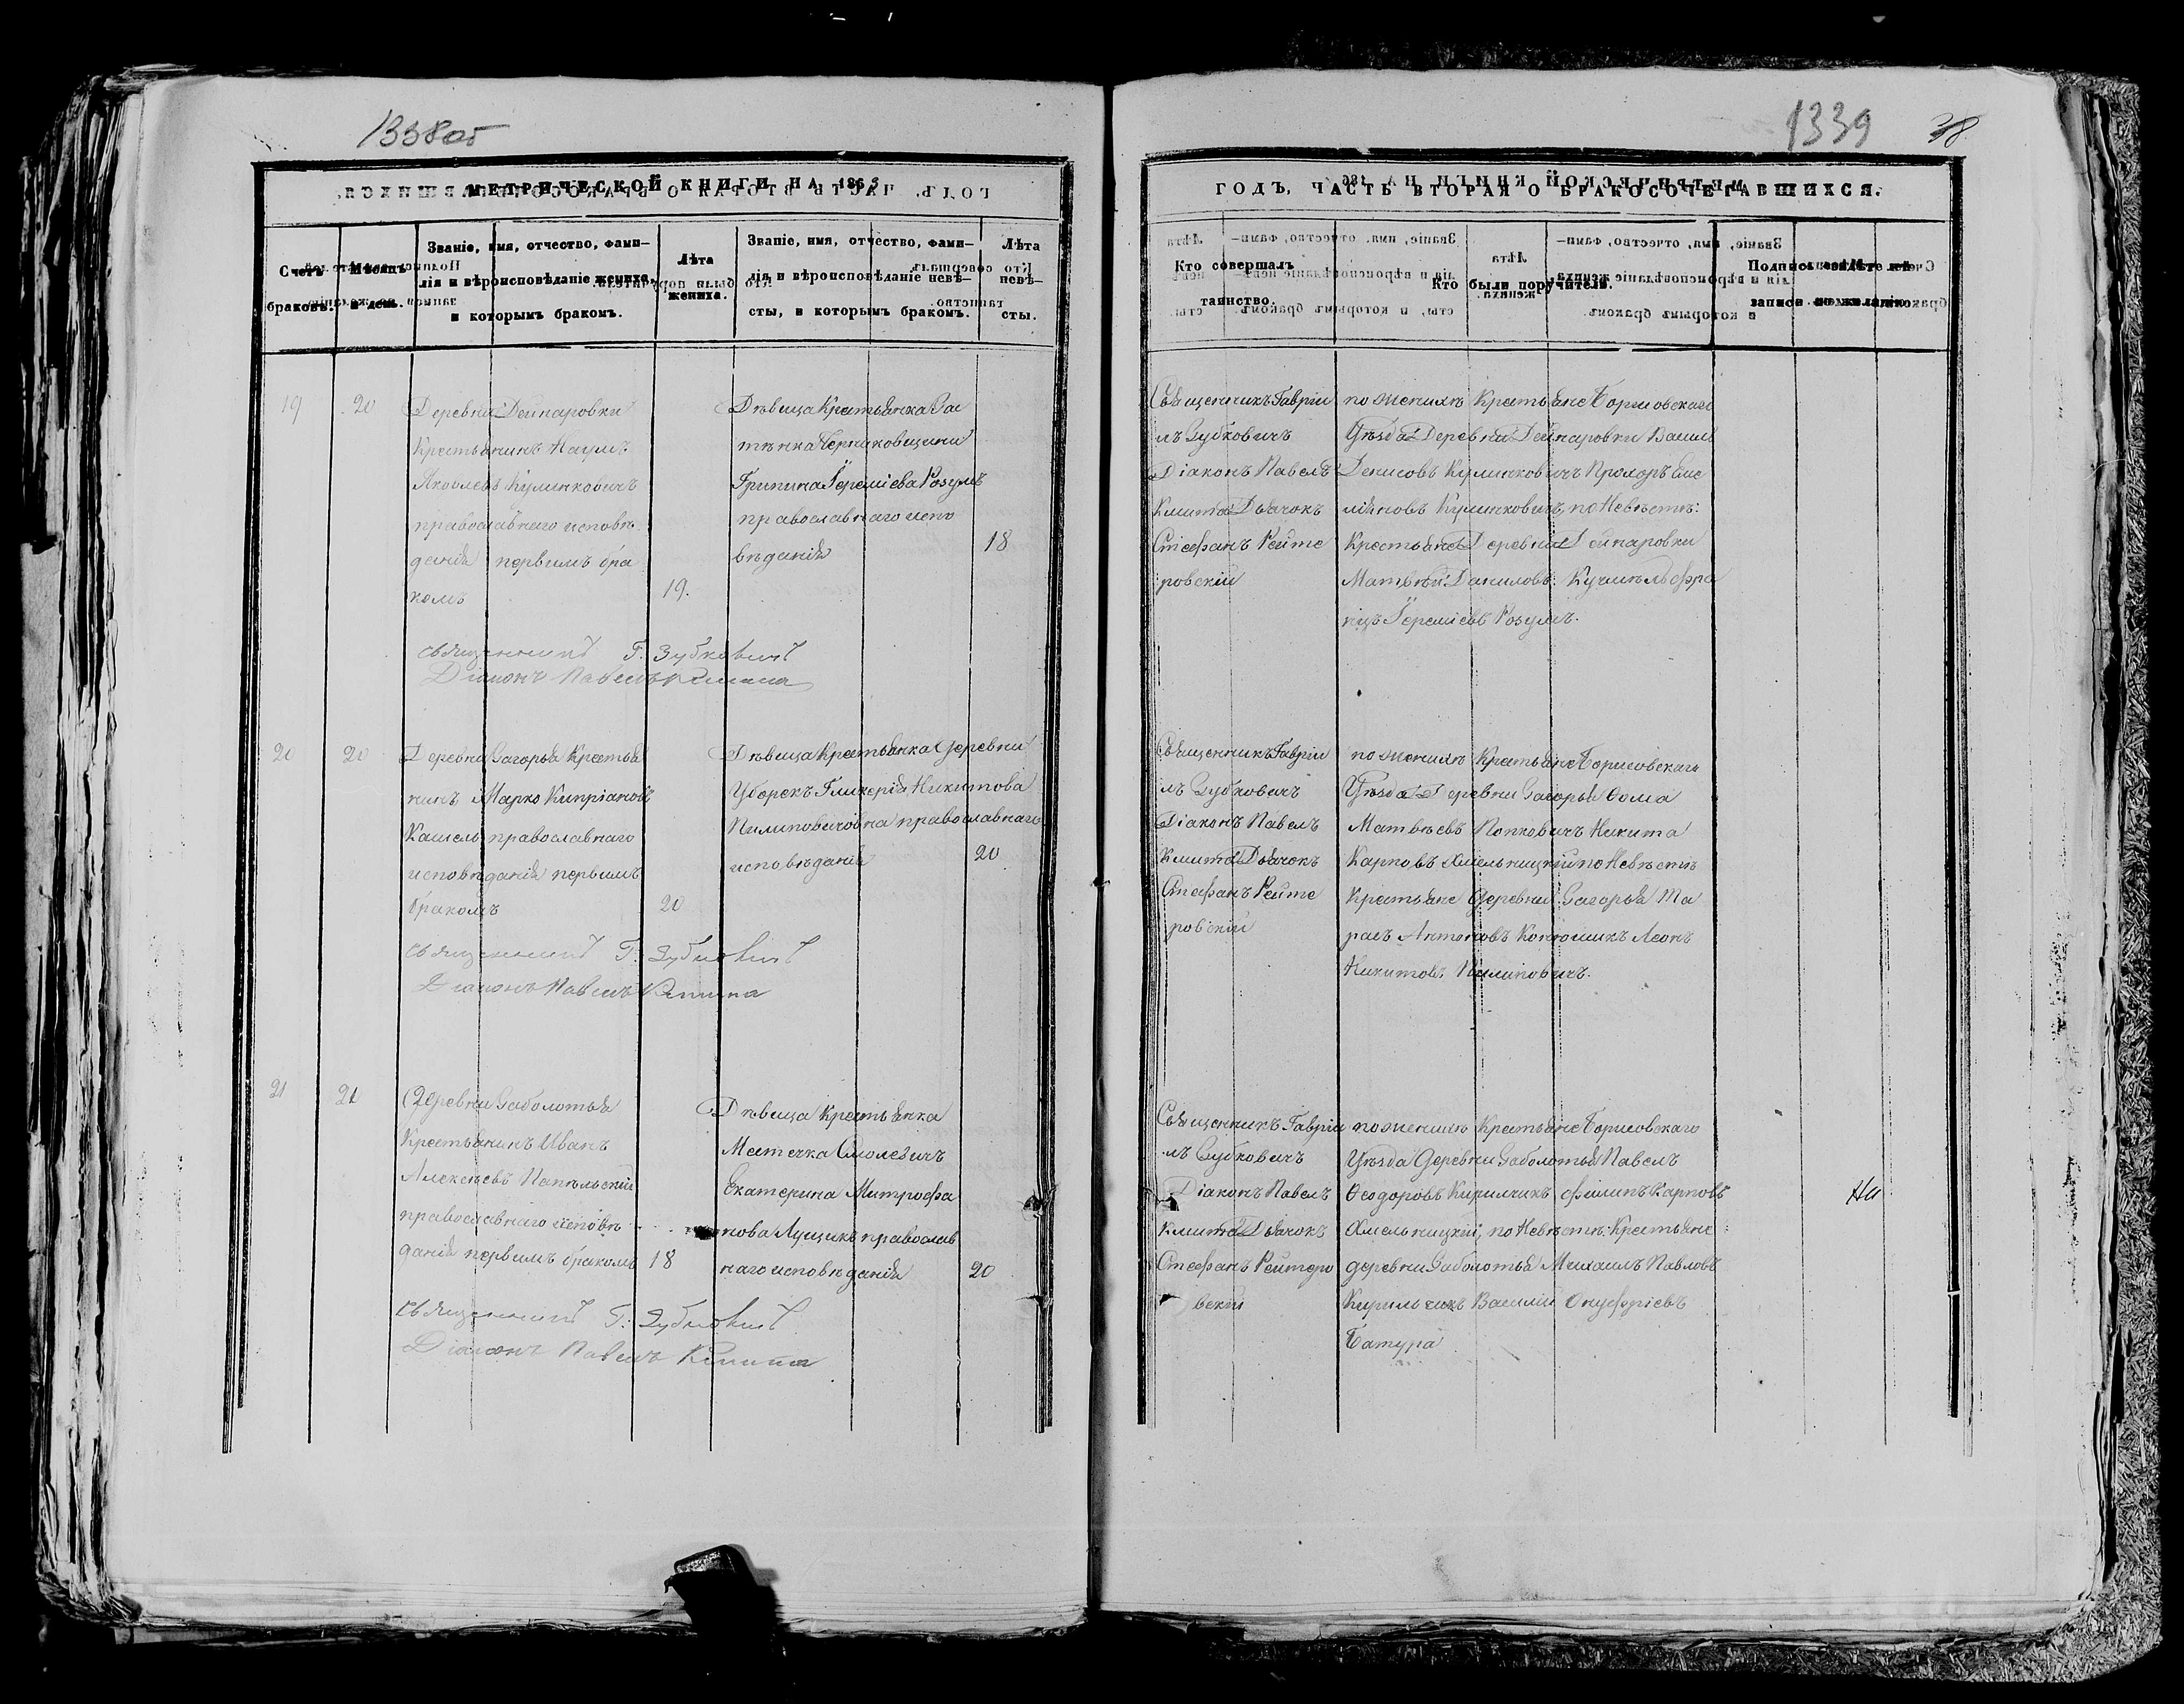 1338об
МЕТРИЧЕСКОЙ КНИГИ НА 1863
Счетъ браковъ.
Мѣсяцъ и день.
Званіе, имя, отчество, фами-
лія и вѣроисповѣданіе жениха,
и которымъ бракомъ.
Лѣта
жениха.
Званіе, имя, отчество, фами-
лія и вѣроисповѣданіе невѣ-
сты, и которымъ бракомъ.
Лѣта
невѣ-
сты.
19
20
Деревни Дейнаровки
Крестьянинъ Наумъ
Яковлевъ Кулинковичъ
православнаго исповѣ
данія первымъ бра
комъ
19.
Дѣвица Крестьянка Зас
тѣнка Черниковщини
Гріпина Іереміева Розумъ
православнаго испо
вѣданія
18
Священникъ Г. Зубковичъ
Діаконъ Павелъ Кмита
20
20
Деревни Загорья Крестья
нинъ Марко Кипріановъ
Кашель православнаго
исповѣданія первымъ
бракомъ
20
Дѣвица Крестьянка деревни
Уборекъ Гликерія Никитова
Пилиповичовна православнаго
исповѣданія
20
Священникъ Г. Зубковичъ
Діаконъ Павелъ Кмита
21
21
Деревни Заболотья
Крестьянинъ Иванъ
Алексѣевъ Напѣльскій
православнаго исповѣ
данія первымъ бракомъ
18
Дѣвица Крестьянка
Местечка Смолевичъ
Екатерина Митрофа
нова Лущикъ православ
наго исповѣданія
20
Священникъ Г. Зубковичъ
Діаконъ Павелъ Кмита
1339
38
ГОДЪ, ЧАСТЬ ВТОРАЯ О БРАКОСОЧЕТАВШИХСЯ.
Кто совершалъ
таинство.
Кто были поручители.
Подпись свидѣтелей
записи по желанію.
Священникъ Гавріи
лъ Зубковичъ
Діаконъ Павелъ
Кмита Дьячокъ
Стефанъ Рейте
ровскій
по женихѣ Крестьяне Борисовскаго
Уѣзда Деревни Дейнаровки Васил
Денисовъ Кулинковичъ Прохоръ Еме
ліяновъ Кулинковичъ, по Невѣстѣ:
Крестьяне Деревни Дейнаровки
Матвѣй Даниловъ Кучмѣль Фра
нцъ Іереміевъ Розумъ.
Священникъ Гавріи
лъ Зубковичъ
Діаконъ Павелъ
Кмита Дьячокъ
Стефанъ Рейте
ровскій
по женихѣ Крестьяне Борисовскаго
Уѣзда Деревни Загорья Ѳома
Матвѣевъ Попковичъ Никита
Карповъ Хмельницкій по Невѣстѣ
Крестьяне деревни Загорья Та
расъ Антоновъ Конюшикъ Леонъ
Никитовъ Пилиповичъ.
Священникъ Гавріи
лъ Зубковичъ
Діаконъ Павелъ
Кмита Дьячокъ
Стефанъ Рейтеро
вскій
по женихѣ Крестьяне Борисовскаго
Уѣзда деревни Заболотья Павелъ
Ѳеодоровъ Кирилчикъ Филипъ Карповъ
Хмельницкій, по Невѣстѣ: Крестьяне
деревни Заболотья Михаилъ Павловъ
Кирильчикъ Василій Онуфріевъ
Батура